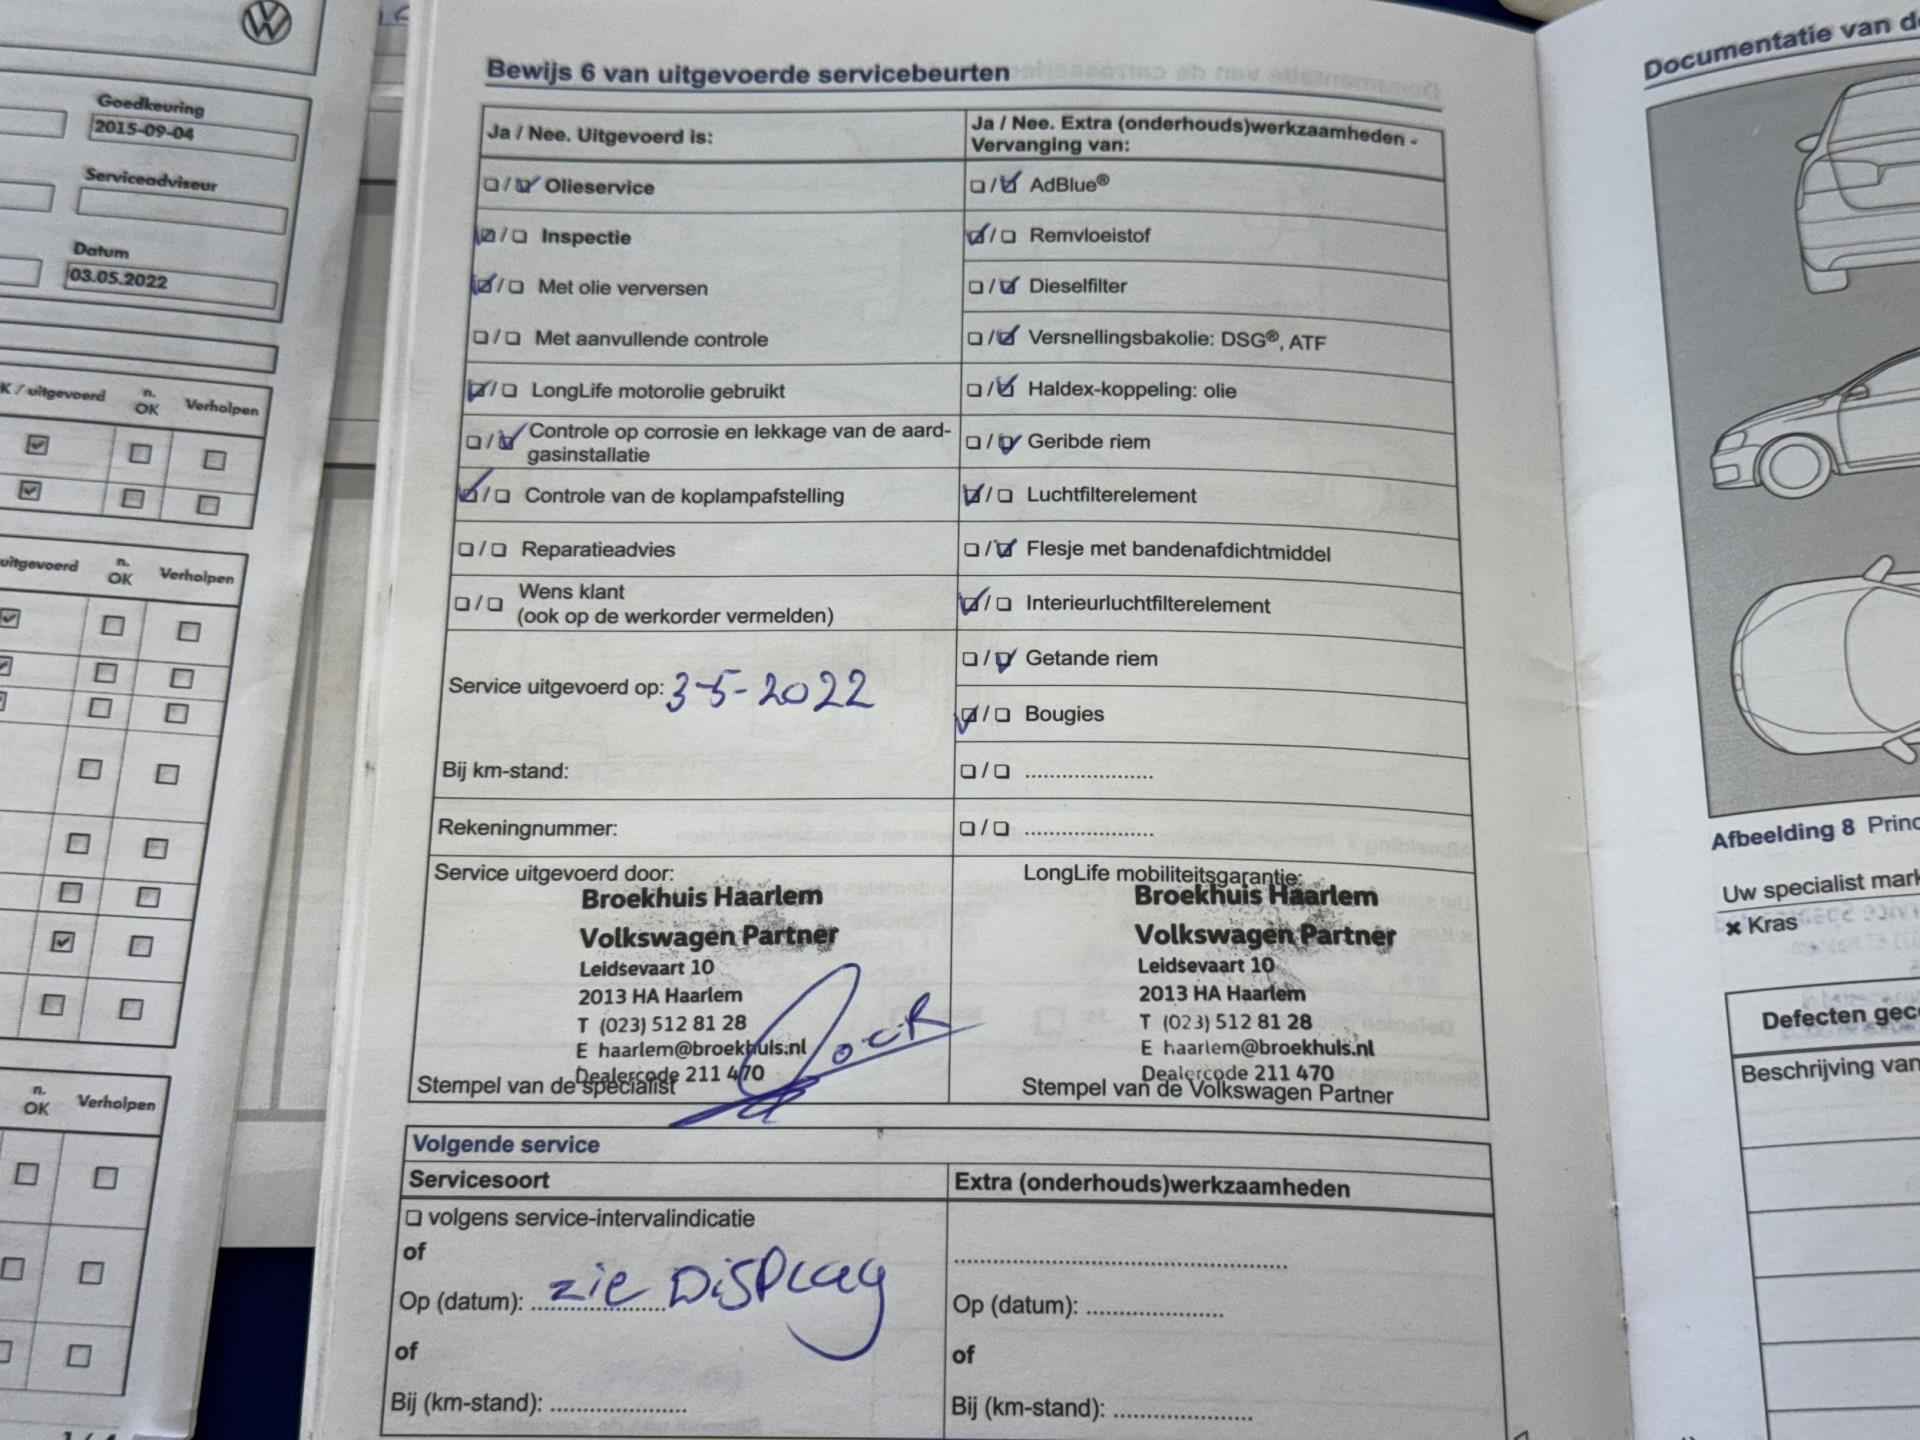 Goedkeuring
2015-09-04
Serviceadviseur
Datum
03.05.2022
K / uitgevoerd n. OK Verholpen
uitgevoerd n. OK Verholpen
n. OK Verholpen
Bewijs 6 van uitgevoerde servicebeurten
Ja / Nee. Uitgevoerd is:
Olieservice
Inspectie
Met olie verversen
Met aanvullende controle
LongLife motorolie gebruikt
Controle op corrosie en lekkage van de aard-
gasinstallatie
Controle van de koplampafstelling
Reparatieadvies
Wens klant
(ook op de werkorder vermelden)
Service uitgevoerd op: 3-5-2022
Bij km-stand:
Rekeningnummer:
Ja / Nee. Extra (onderhouds)werkzaamheden -
Vervanging van:
AdBlue®
Remvloeistof
Dieselfilter
Versnellingsbakolie: DSG®, ATF
Haldex-koppeling: olie
Geribde riem
Luchtfilterelement
Flesje met bandenafdichtmiddel
Interieurluchtfilterelement
Getande riem
Bougies
Service uitgevoerd door:
Broekhuis Haarlem
Volkswagen Partner
Leidsevaart 10
2013 HA Haarlem
T (023) 512 81 28
E haarlem@broekhuis.nl
Dealercode 211 470
Stempel van de specialist
LongLife mobiliteitsgarantie:
Broekhuis Haarlem
Volkswagen Partner
Leidsevaart 10
2013 HA Haarlem
T (023) 512 81 28
E haarlem@broekhuis.nl
Dealercode 211 470
Stempel van de Volkswagen Partner
Volgende service
Servicesoort
volgens service-intervalindicatie
of
Op (datum): zie Display
of
Bij (km-stand):
Extra (onderhouds)werkzaamheden
Op (datum):
of
Bij (km-stand):
Documentatie van d
Afbeelding 8 Princ
Uw specialist mark
× Kras
Defecten gec
Beschrijving van